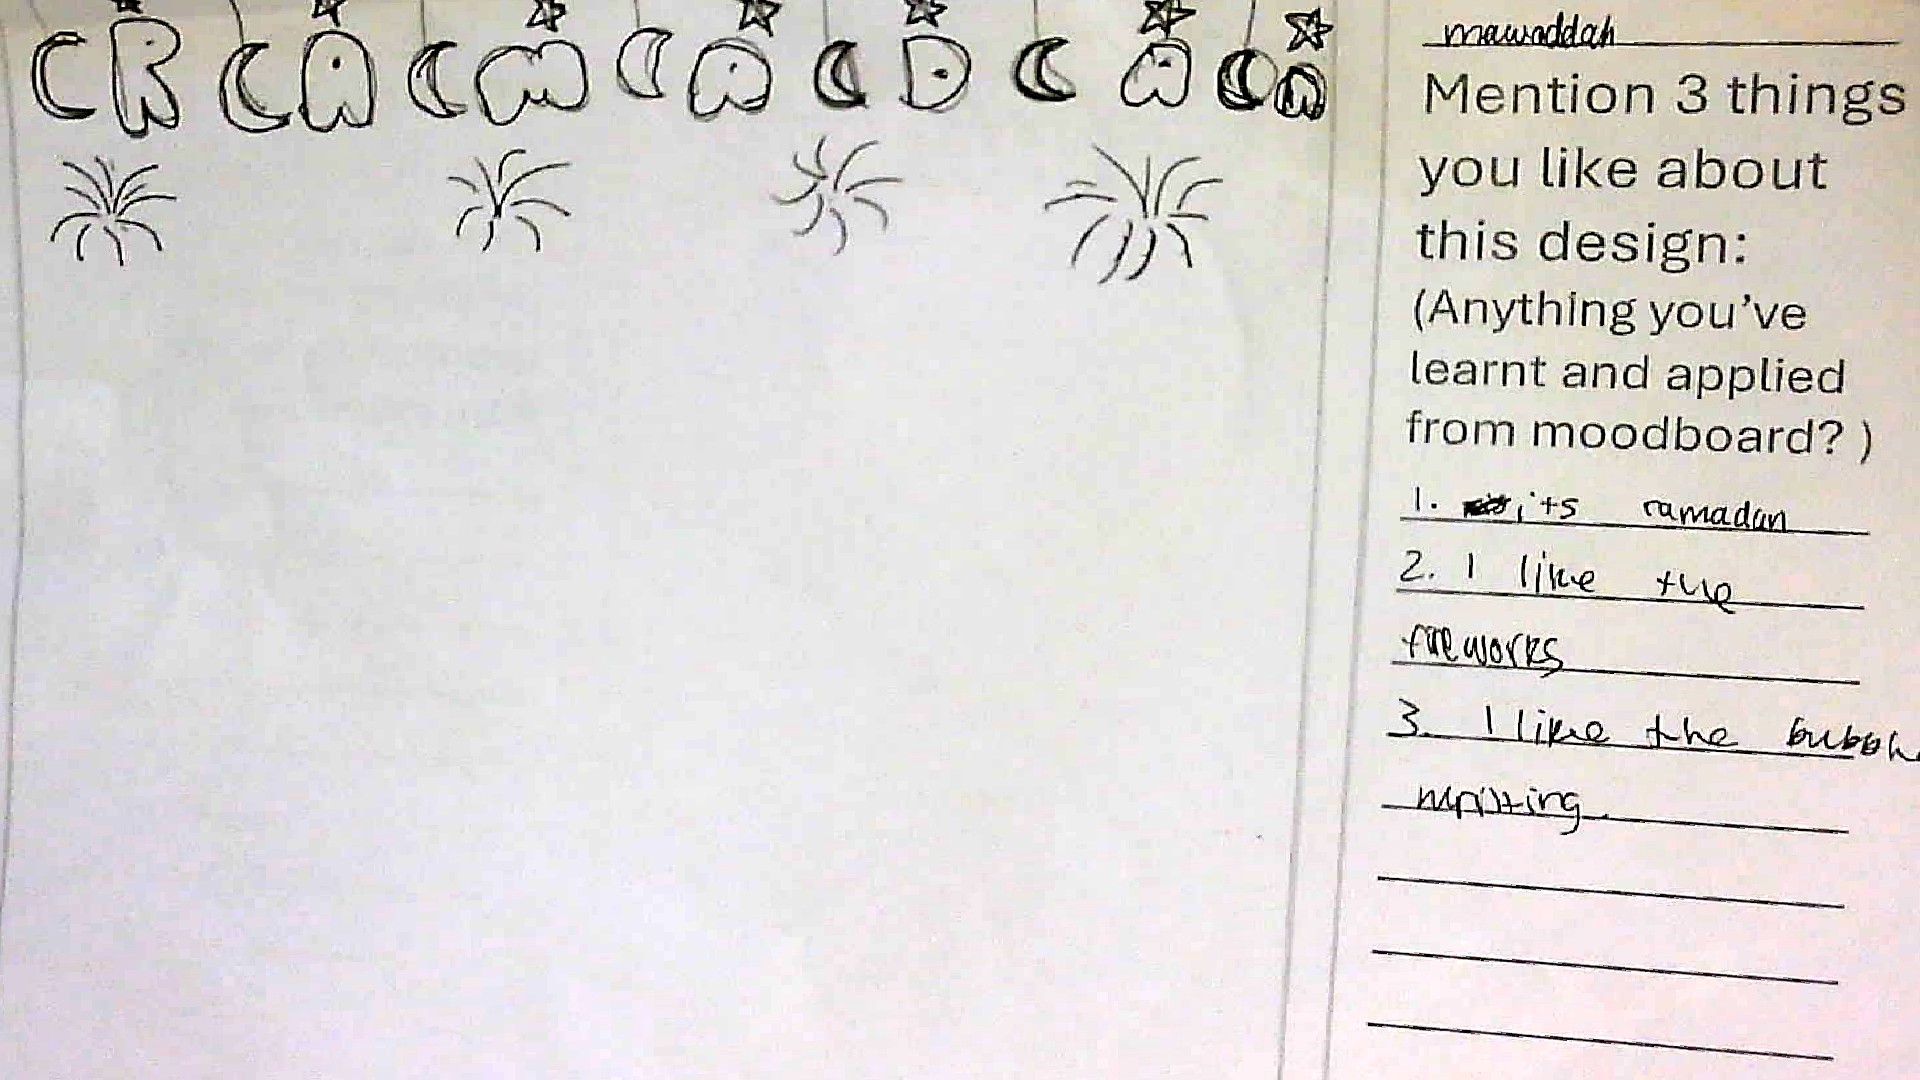 RAMADAN
mawaddah
Mention 3 things
you like about
this design:
(Anything you've
learnt and applied
from moodboard? )
1. its ramadan
2. I like the
fireworks
3. I like the